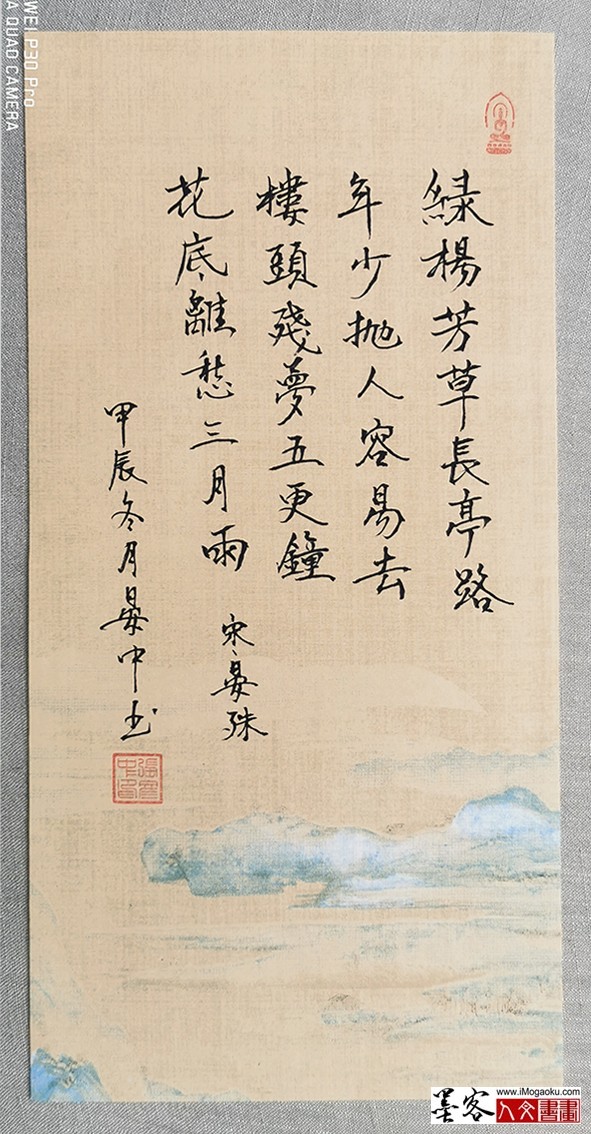 綠楊芳草長亭路
年少抛人容易去
樓頭殘夢五更鐘
花底離愁三月雨
宋晏殊
甲辰冬月晏中书
WEI P30 Pro
A QUAD CAMERA
www.iMogaoku.com
墨客人文書畫